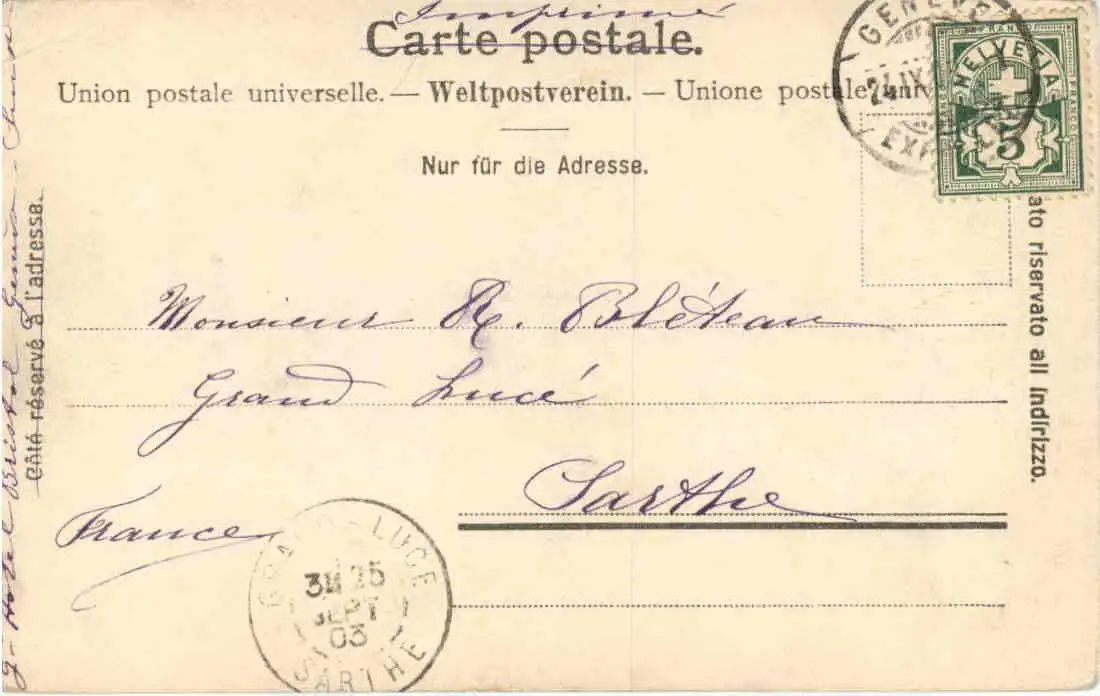 Imprimé
Carte postale.
Union postale universelle. — Weltpostverein. — Unione postale univ
Nur für die Adresse.
Côté réservé à l'adresse.
ato riservato all indirizzo.
GENÈVE
24 IX
EXP
FRANCO
HELVETIA
FRANCO
5
Monsieur R. Bléteau
Grand Lucé
Sarthe
France
GRAND-LUCÉ
3E 25
SEPT
03
SARTHE
Hotel Bristol Genève